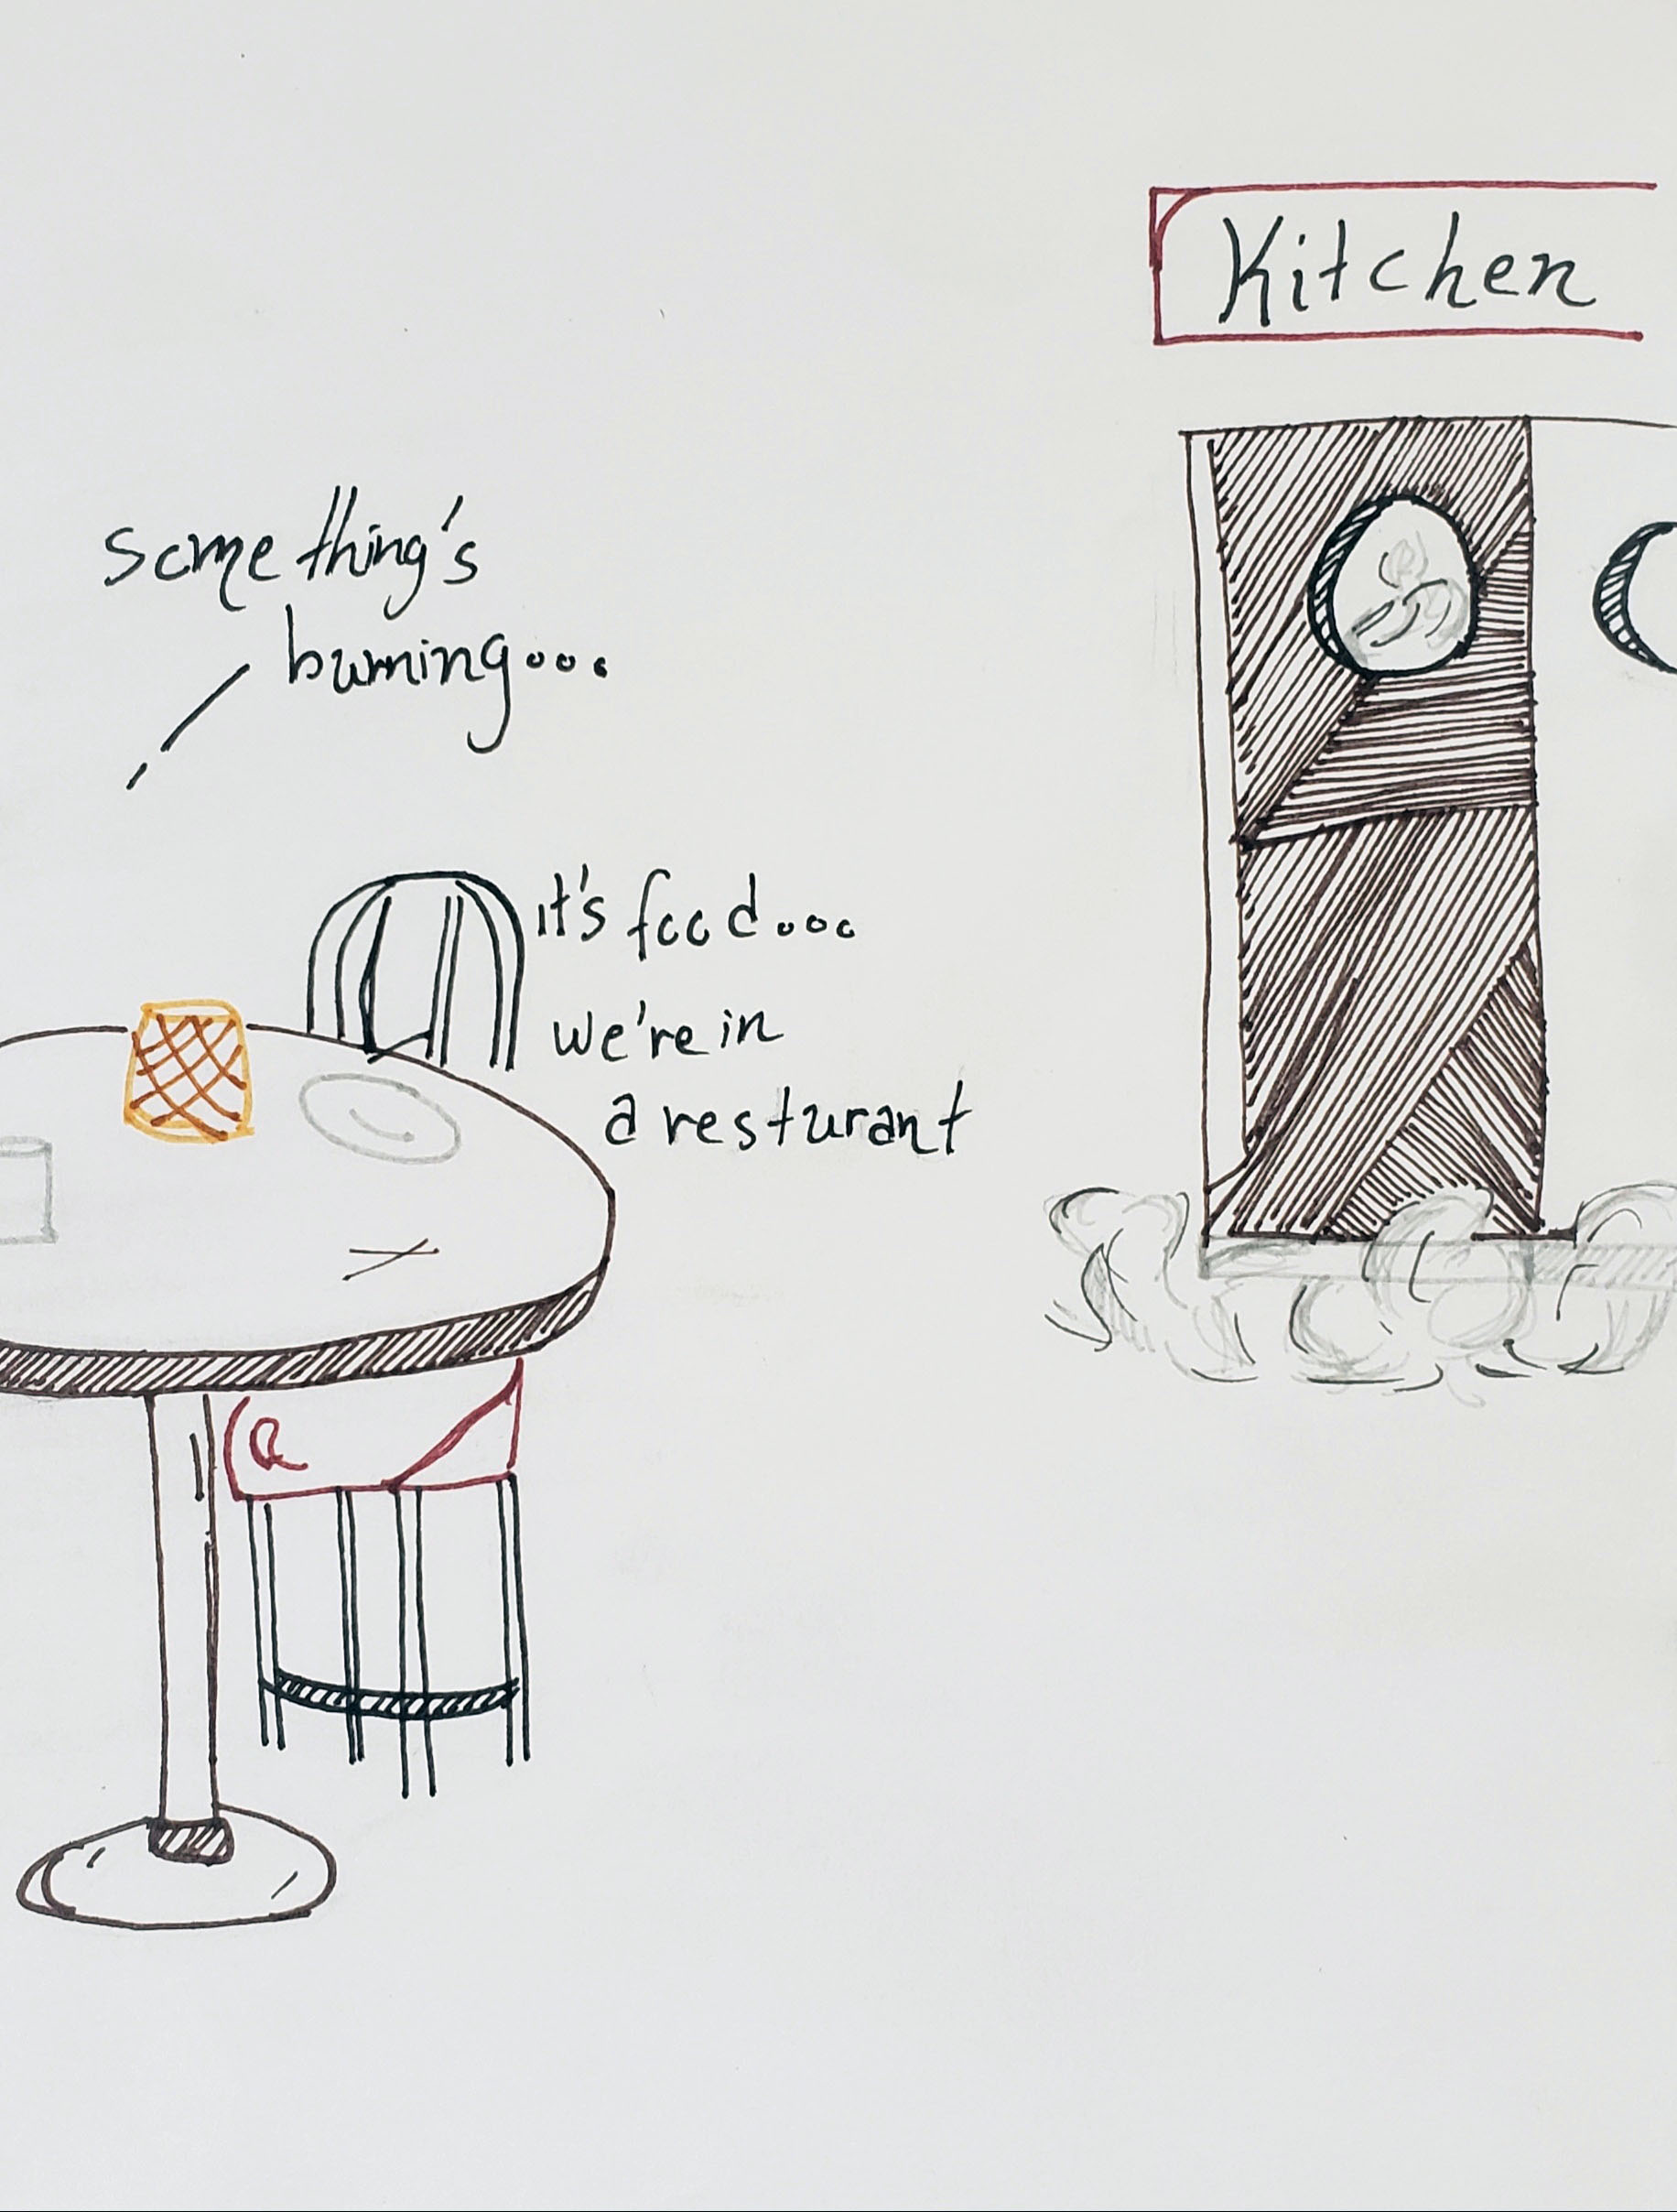 Kitchen
something's
burning...
it's food...
we're in
a resturant